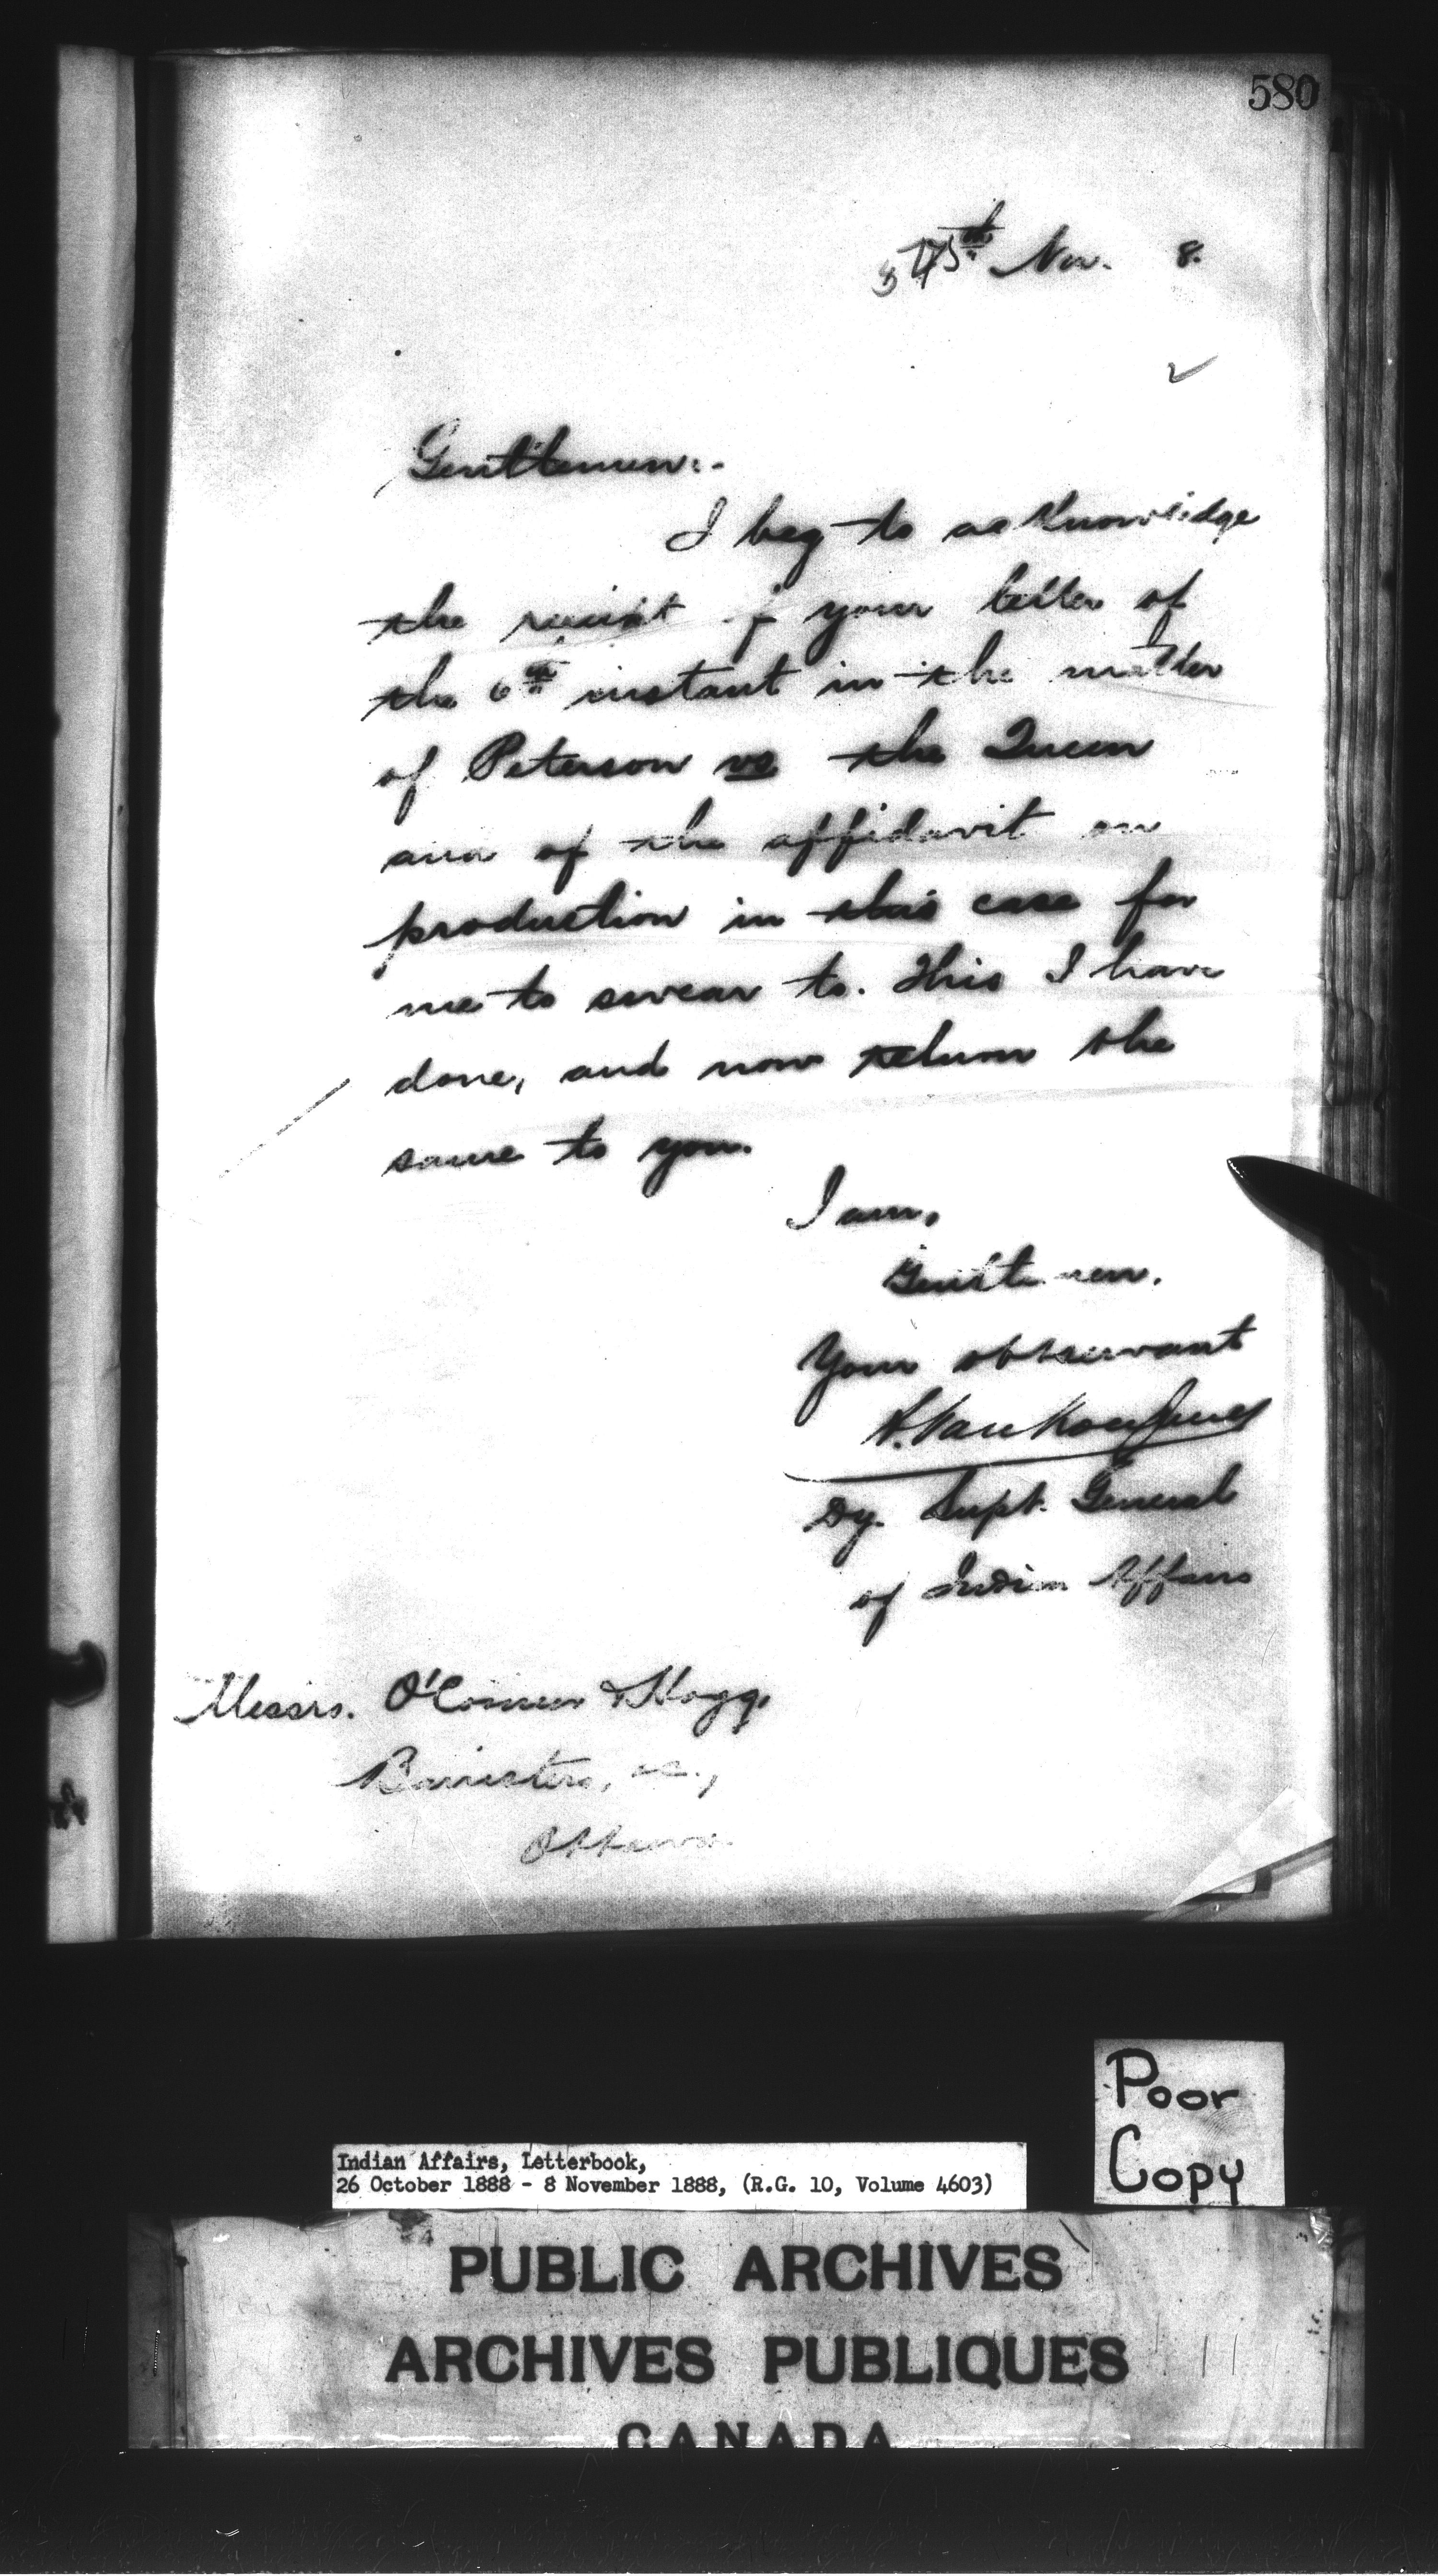 580
Nov. 8.
Gentlemen:-
I beg to acknowledge
the receipt of your letter of
the 6th instant in the matter
of Peterson vs the Queen
and of the affidavit on
production in this case for
me to swear to. This I have
done, and now return the
same to you.
I am,
Gentlemen,
Your obt servant
L. VanKoughnet
Dy. Supt. General
of Indian Affairs
Messrs. O'Connor & Hogg,
Barristers, &c.,
Ottawa
Poor
Copy
Indian Affairs, Letterbook,
26 October 1888 - 8 November 1888, (R.G. 10, Volume 4603)
PUBLIC ARCHIVES
ARCHIVES PUBLIQUES
CANADA